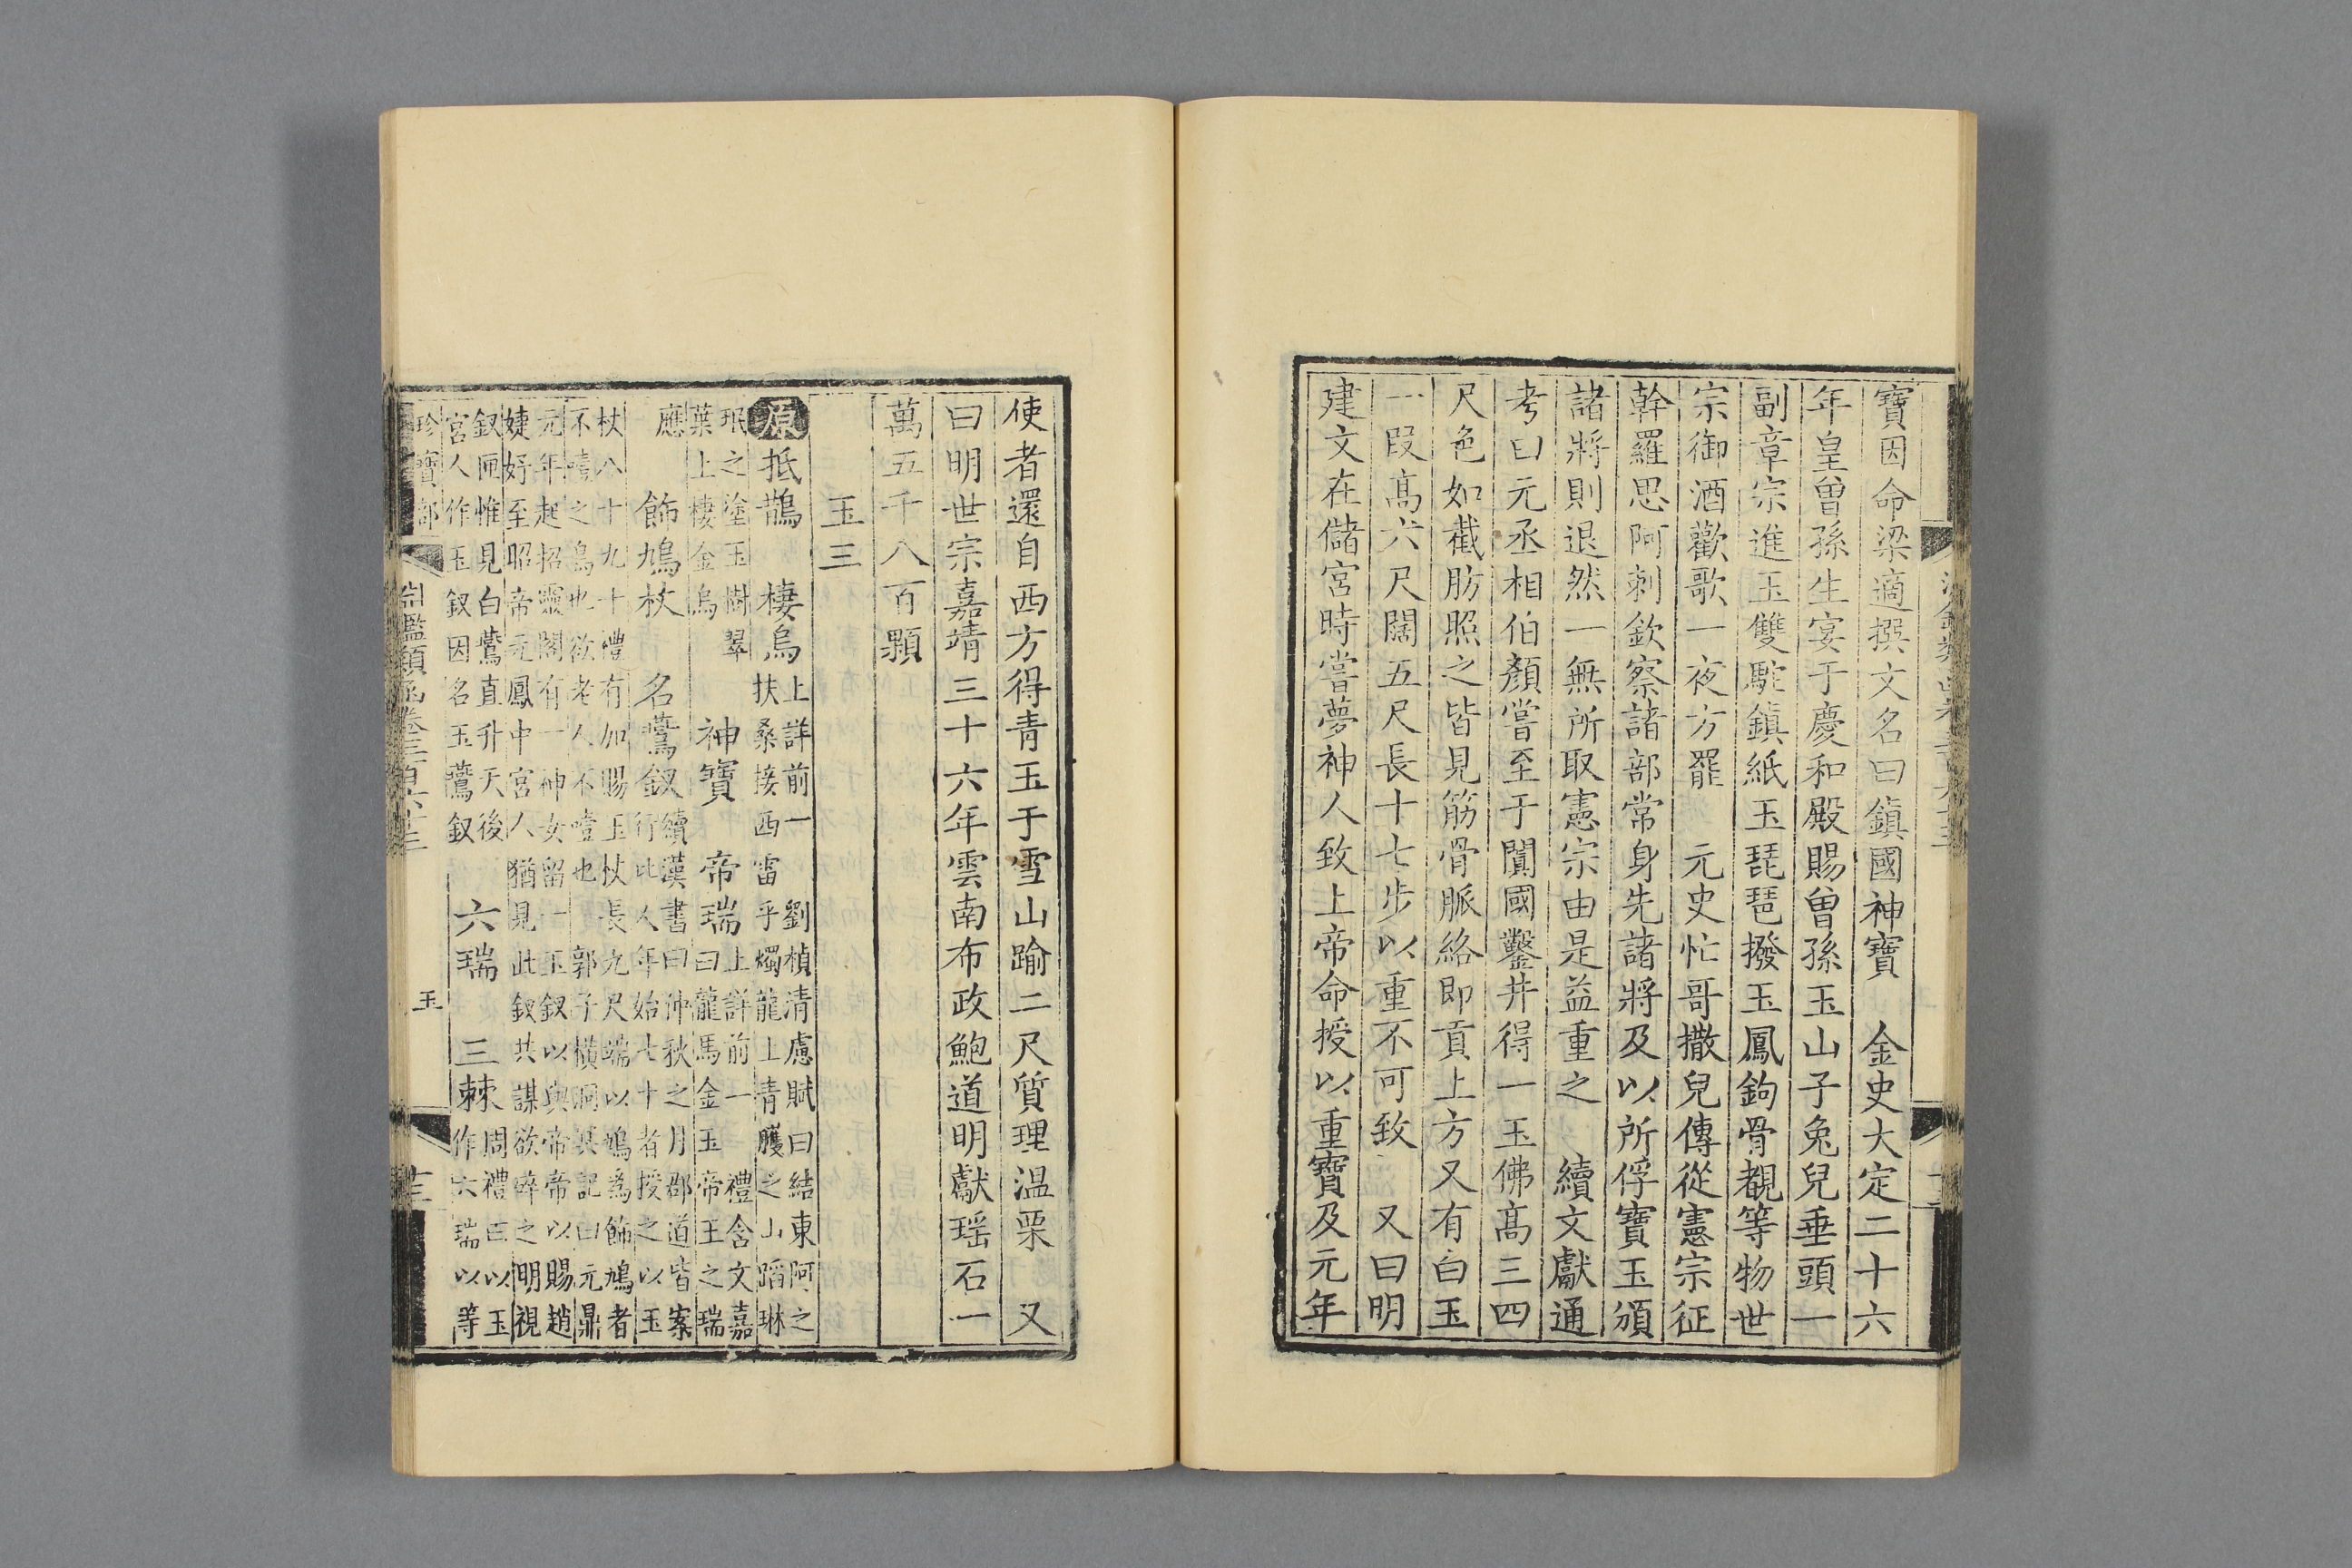 寶因命梁適撰文名曰鎮國神寶 金史大定二十六
年皇曾孫生宴于慶和殿賜曾孫玉山子兔兒垂頭一
副章宗進玉雙駝鎮紙玉琵琶撥玉鳳鉤骨覩等物世
宗御酒歡歌一夜方罷 元史忙哥撒兒傳從憲宗征
斡羅思阿刺欽察諸部常身先諸將及以所俘寶玉頒
諸將則退然一無所取憲宗由是益重之 續文獻通
考曰元丞相伯顏嘗至于闐國鑿井得一玉佛高三四
尺色如截肪照之皆見筋骨脈絡即貢上方又有白玉
一叚高六尺闊五尺長十七步以重不可致 又曰明
建文在儲宮時嘗夢神人致上帝命授以重寶及元年
使者還自西方得青玉于雪山踰二尺質理温栗 又
曰明世宗嘉靖三十六年雲南布政鮑道明獻瑶石一
萬五千八百顆
玉三
原抵鵲 棲烏上詳前一 劉楨清慮賦曰結東阿之
扶桑接西雷乎燭龍上青臒之山蹈琳
珉之塗玉樹翠
葉上棲金烏 神寶 帝瑞上詳前一 禮含文嘉
曰龍馬金玉帝王之瑞
應 飾鳩杖 名鷰釵續漢書曰仲秋之月郡道皆案
行此人年始七十者授之以玉
杖八十九十禮有加賜玉杖長九尺端以鳩爲飾鳩者
不噎之鳥也欲老人不噎也 郭子橫洞冥記曰元鼎
元年起招靈閣有一神女留一玉釵以與帝帝以賜趙
婕妤至昭帝元鳳中宮人猶見此釵共謀欲碎之明視
釵匣惟見白鷰直升天後
宮人作玉釵因名玉鷰釵 六瑞 三棘周禮曰以玉
作六瑞以等
珍寶部 淵鑑類函卷三百六十三 玉 十三